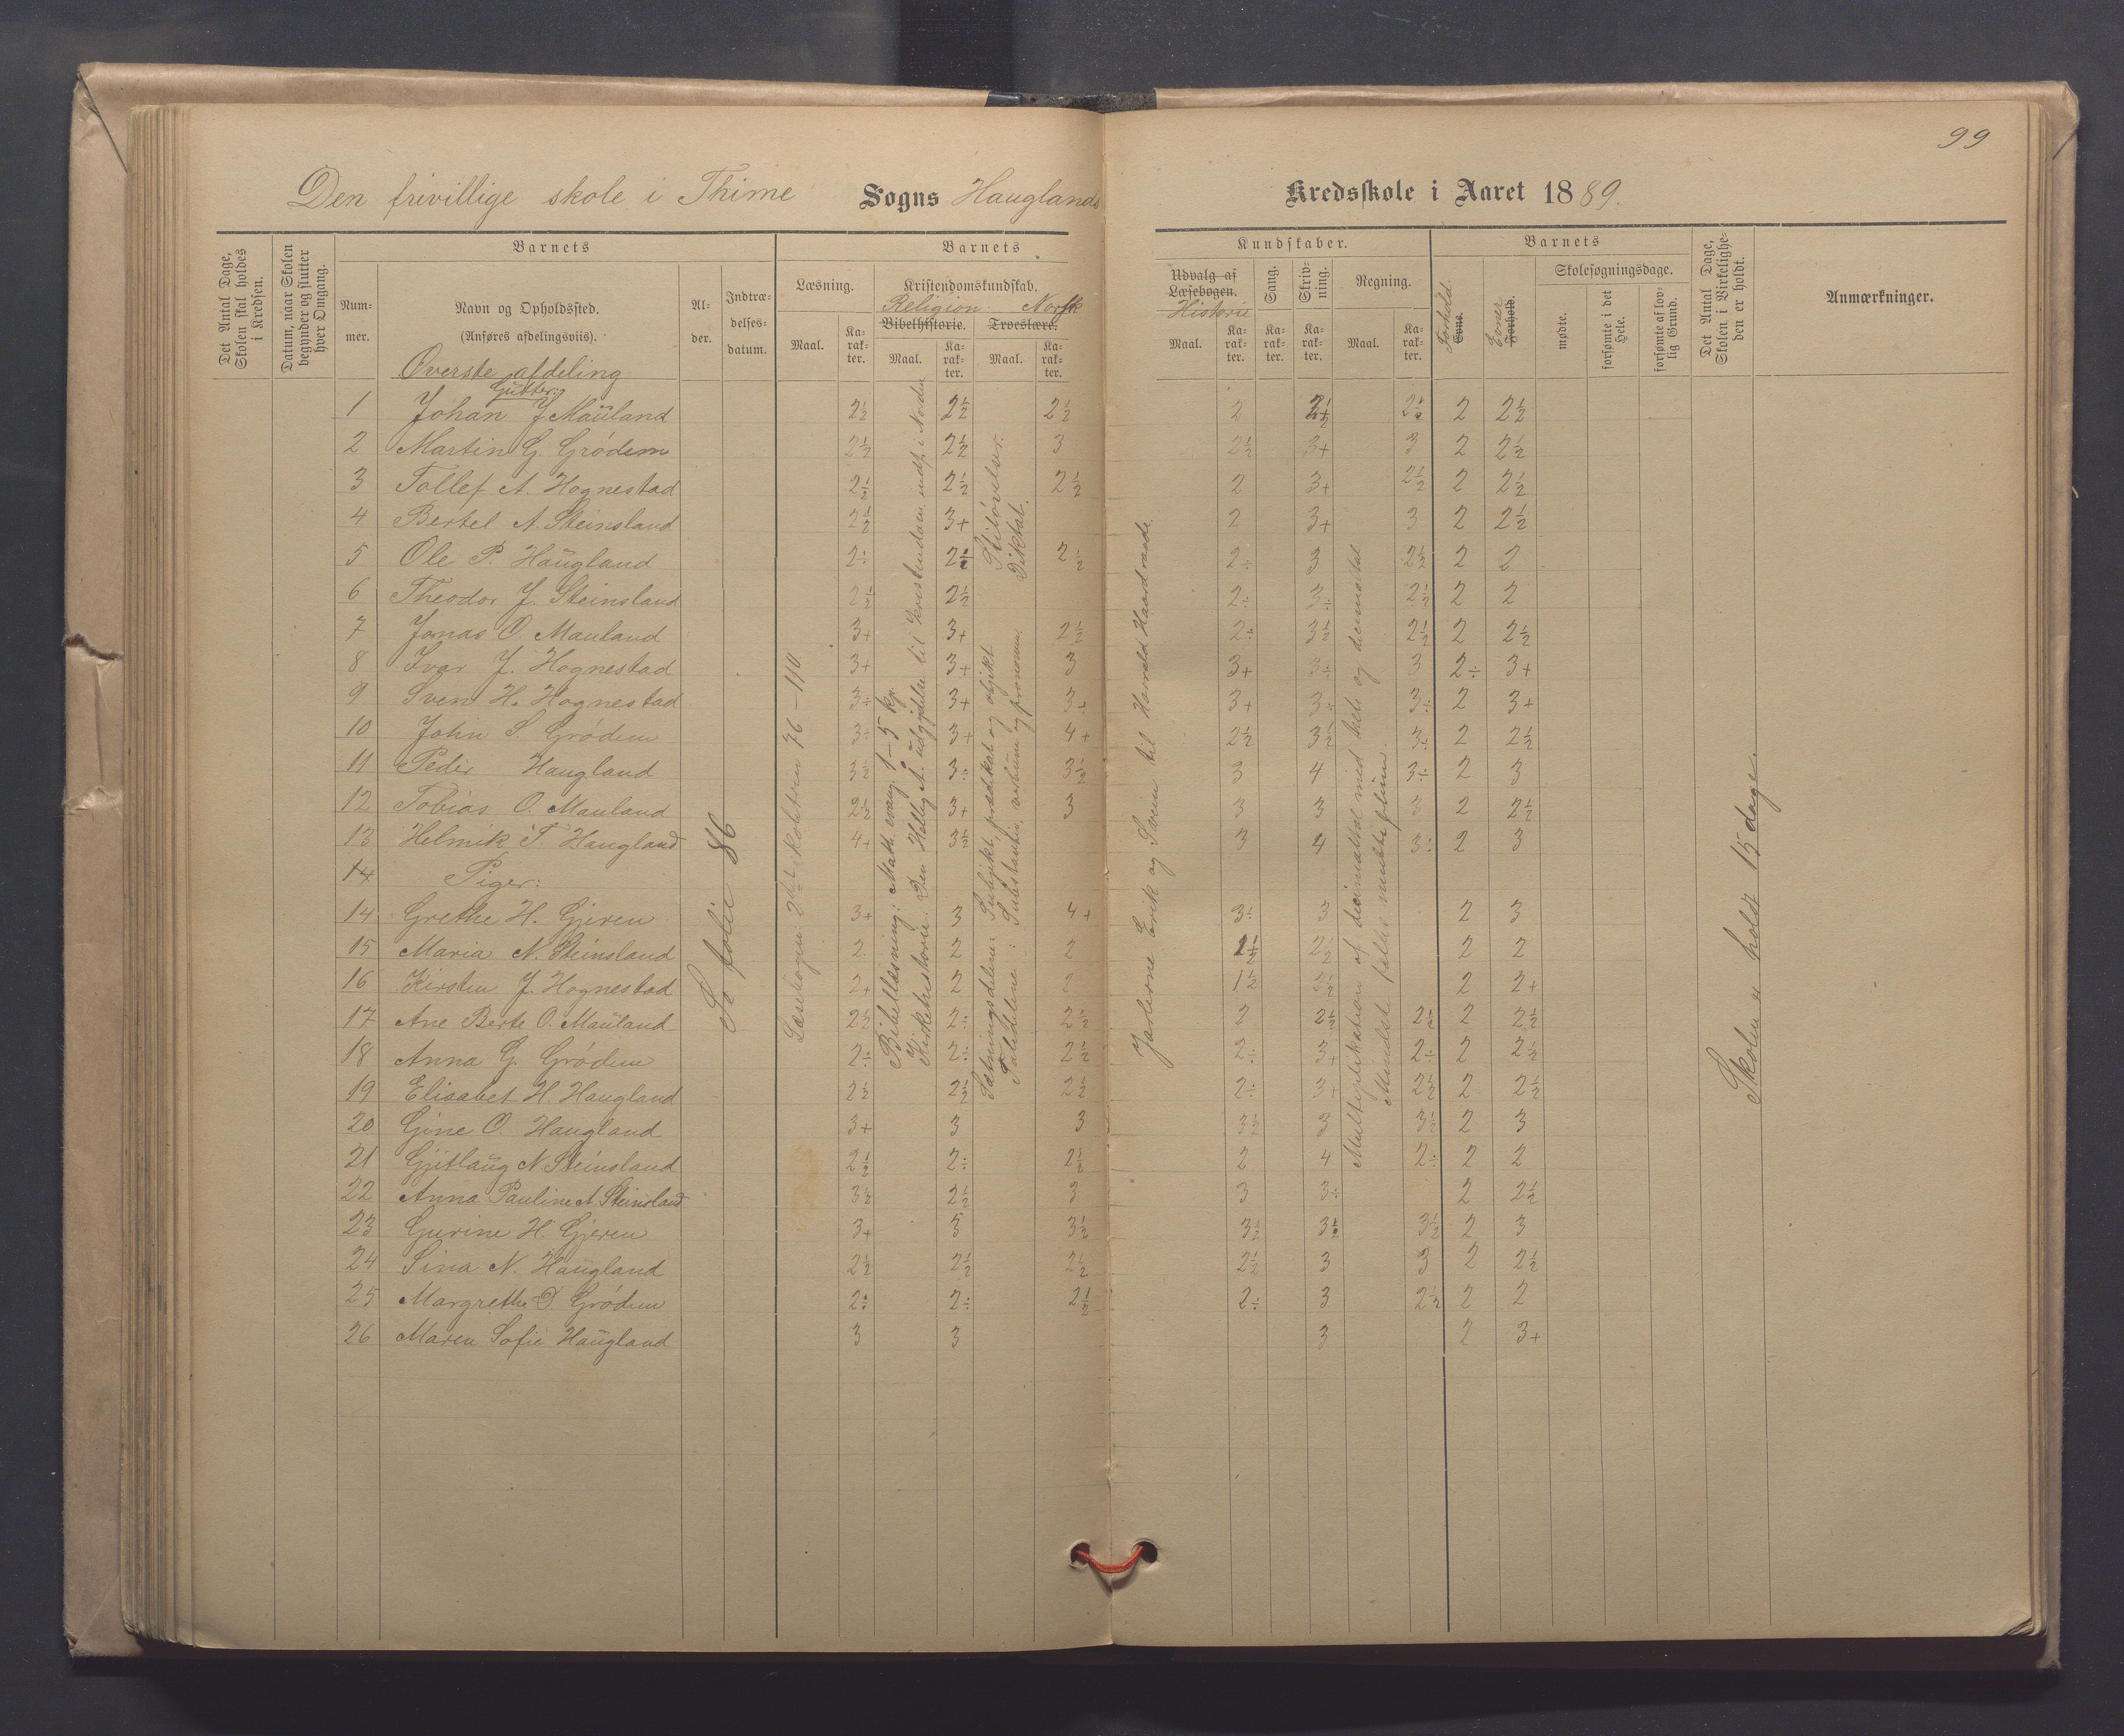 99
Den frivillige skole i Thime Sogns Hauglands Kredsskole i Aaret 1889.
Det Antal Dage, Skolen skal holdes i Kredsen.
Datum, naar Skolen begynder og slutter hver Omgang.
Barnets
Nummer.
Navn og Opholdssted.
(Anføres afdelingsviis).
Alder.
Indtrædelsesdatum.
Barnets
Læsning.
Maal.
Karakter.
Kristendomskundskab.
Religion. Norsk
Bibelhistorie. Troeslære.
Maal. Karakter. Maal. Karakter.
Kundskaber.
Udvalg af Læsebogen.
Historie
Maal. Karakter.
Sang.
Karakter.
Skrivning.
Karakter.
Regning.
Maal. Karakter.
Barnets
Forhold.
Evne.
Evner
Forhold.
Skolesøgningsdage.
mødte.
forsømte i det Hele.
forsømte af lovlig Grund.
Det Antal Dage, Skolen i Virkeligheden er holdt.
Anmærkninger.
Øverste afdeling
Gutter:
1 Johan J. Mauland 2½ 2½ 2½ 2 2½ 2½ 2 2½
2 Martin G. Grödem 2½ 2½ 3 2½ 3+ 3 2 2½
3 Tollef A. Hognestad 2½ 2½ 2½ 2 3+ 2½ 2 2½
4 Bertel A. Steinsland 2½ 3+ 2 3+ 3 2 2½
5 Ole P. Haugland 2÷ 2½ 2½ 2÷ 3 2½ 2 2
6 Theodor J. Steinsland 2½ 2½ 2÷ 3÷ 2½ 2 2
7 Jonas O. Mauland 3+ 3+ 2½ 2÷ 3½ 2½ 2 2½
8 Ivar J. Hognestad 3+ 3+ 3 3+ 3÷ 3 2÷ 3+
9 Sven H. Hognestad 3÷ 3+ 3+ 3+ 3÷ 3÷ 2 3+
10 John S. Grödem 3÷ 3+ 4+ 2½ 3½ 3÷ 2 2½
11 Peder Haugland 3½ 3÷ 3½ 3 4 3÷ 2 3
12 Tobias O. Mauland 2½ 3+ 3 3 3 3 2 2½
13 Helmik T. Haugland 4+ 3½ 3 4 3÷ 2 3
14 Piger:
14 Grethe H. Gjeren 3+ 3 4+ 3÷ 3 2 3
15 Maria N. Steinsland 2 2 2 1½ 2½ 2 2
16 Kirsten J. Hognestad 2+ 2 2 1½ 2½ 2 2+
17 Ane Berte O. Mauland 2½ 2÷ 2½ 2 2½ 2½ 2 2½
18 Anna G. Grödem 2÷ 2÷ 2½ 2÷ 3+ 2÷ 2 2½
19 Elisabet H. Haugland 2½ 2½ 2½ 2÷ 3+ 2½ 2 2½
20 Gine O. Haugland 3+ 3 3 3½ 3 3½ 2 3
21 Gjitlaug N. Steinsland 2½ 2÷ 2½ 2 4 2÷ 2 2
22 Anna Pauline A. Steinsland 3½ 2½ 3 3 3÷ 2 2½
23 Gurine H. Gjeren 3+ 3 3½ 3½ 3½ 3½ 2 3
24 Sina N. Haugland 2½ 2½ 2½ 2½ 3 3 2 2½
25 Margrethe D. Grödem 2÷ 2÷ 2½ 2÷ 3 2½ 2 2
26 Maren Sofie Haugland 3 3 3 2 3+
Se folie 86
Læsebogen: 2det skoletrin 76 – 110
Bibellæsning: Math. evang. 1–5 kp.
Kirkehistorie: Den Hellig A. udgydelse til kristendom. indf. i Norden
Stiløvelser.
Diktat.
Sætningsdelene: Subjekt, prædikat og objekt
Taledelene: Substantiv, verbum og pronomen.
Jarlerne Erik og Svein til Harald Haardraade.
Multiplikation af decimaltal med hele og decimaltal
Mindste fælles multiplum.
Skolen er holdt 15 dage.